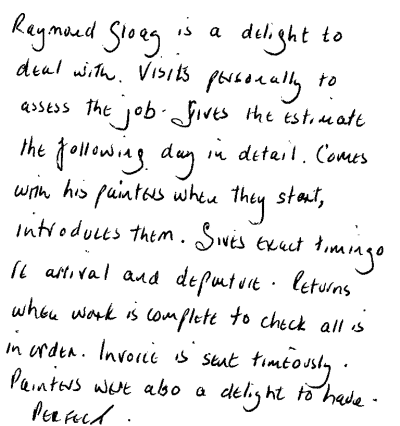 Raymond Gloag is a delight to
deal with. Visits personally to
assess the job. Gives the estimate
the following day in detail. Comes
with his painters when they start,
introduces them. Gives exact timings
re arrival and departure. Returns
when work is complete to check all is
in order. Invoice is sent timeously.
Painters were also a delight to have.
PERFECT.